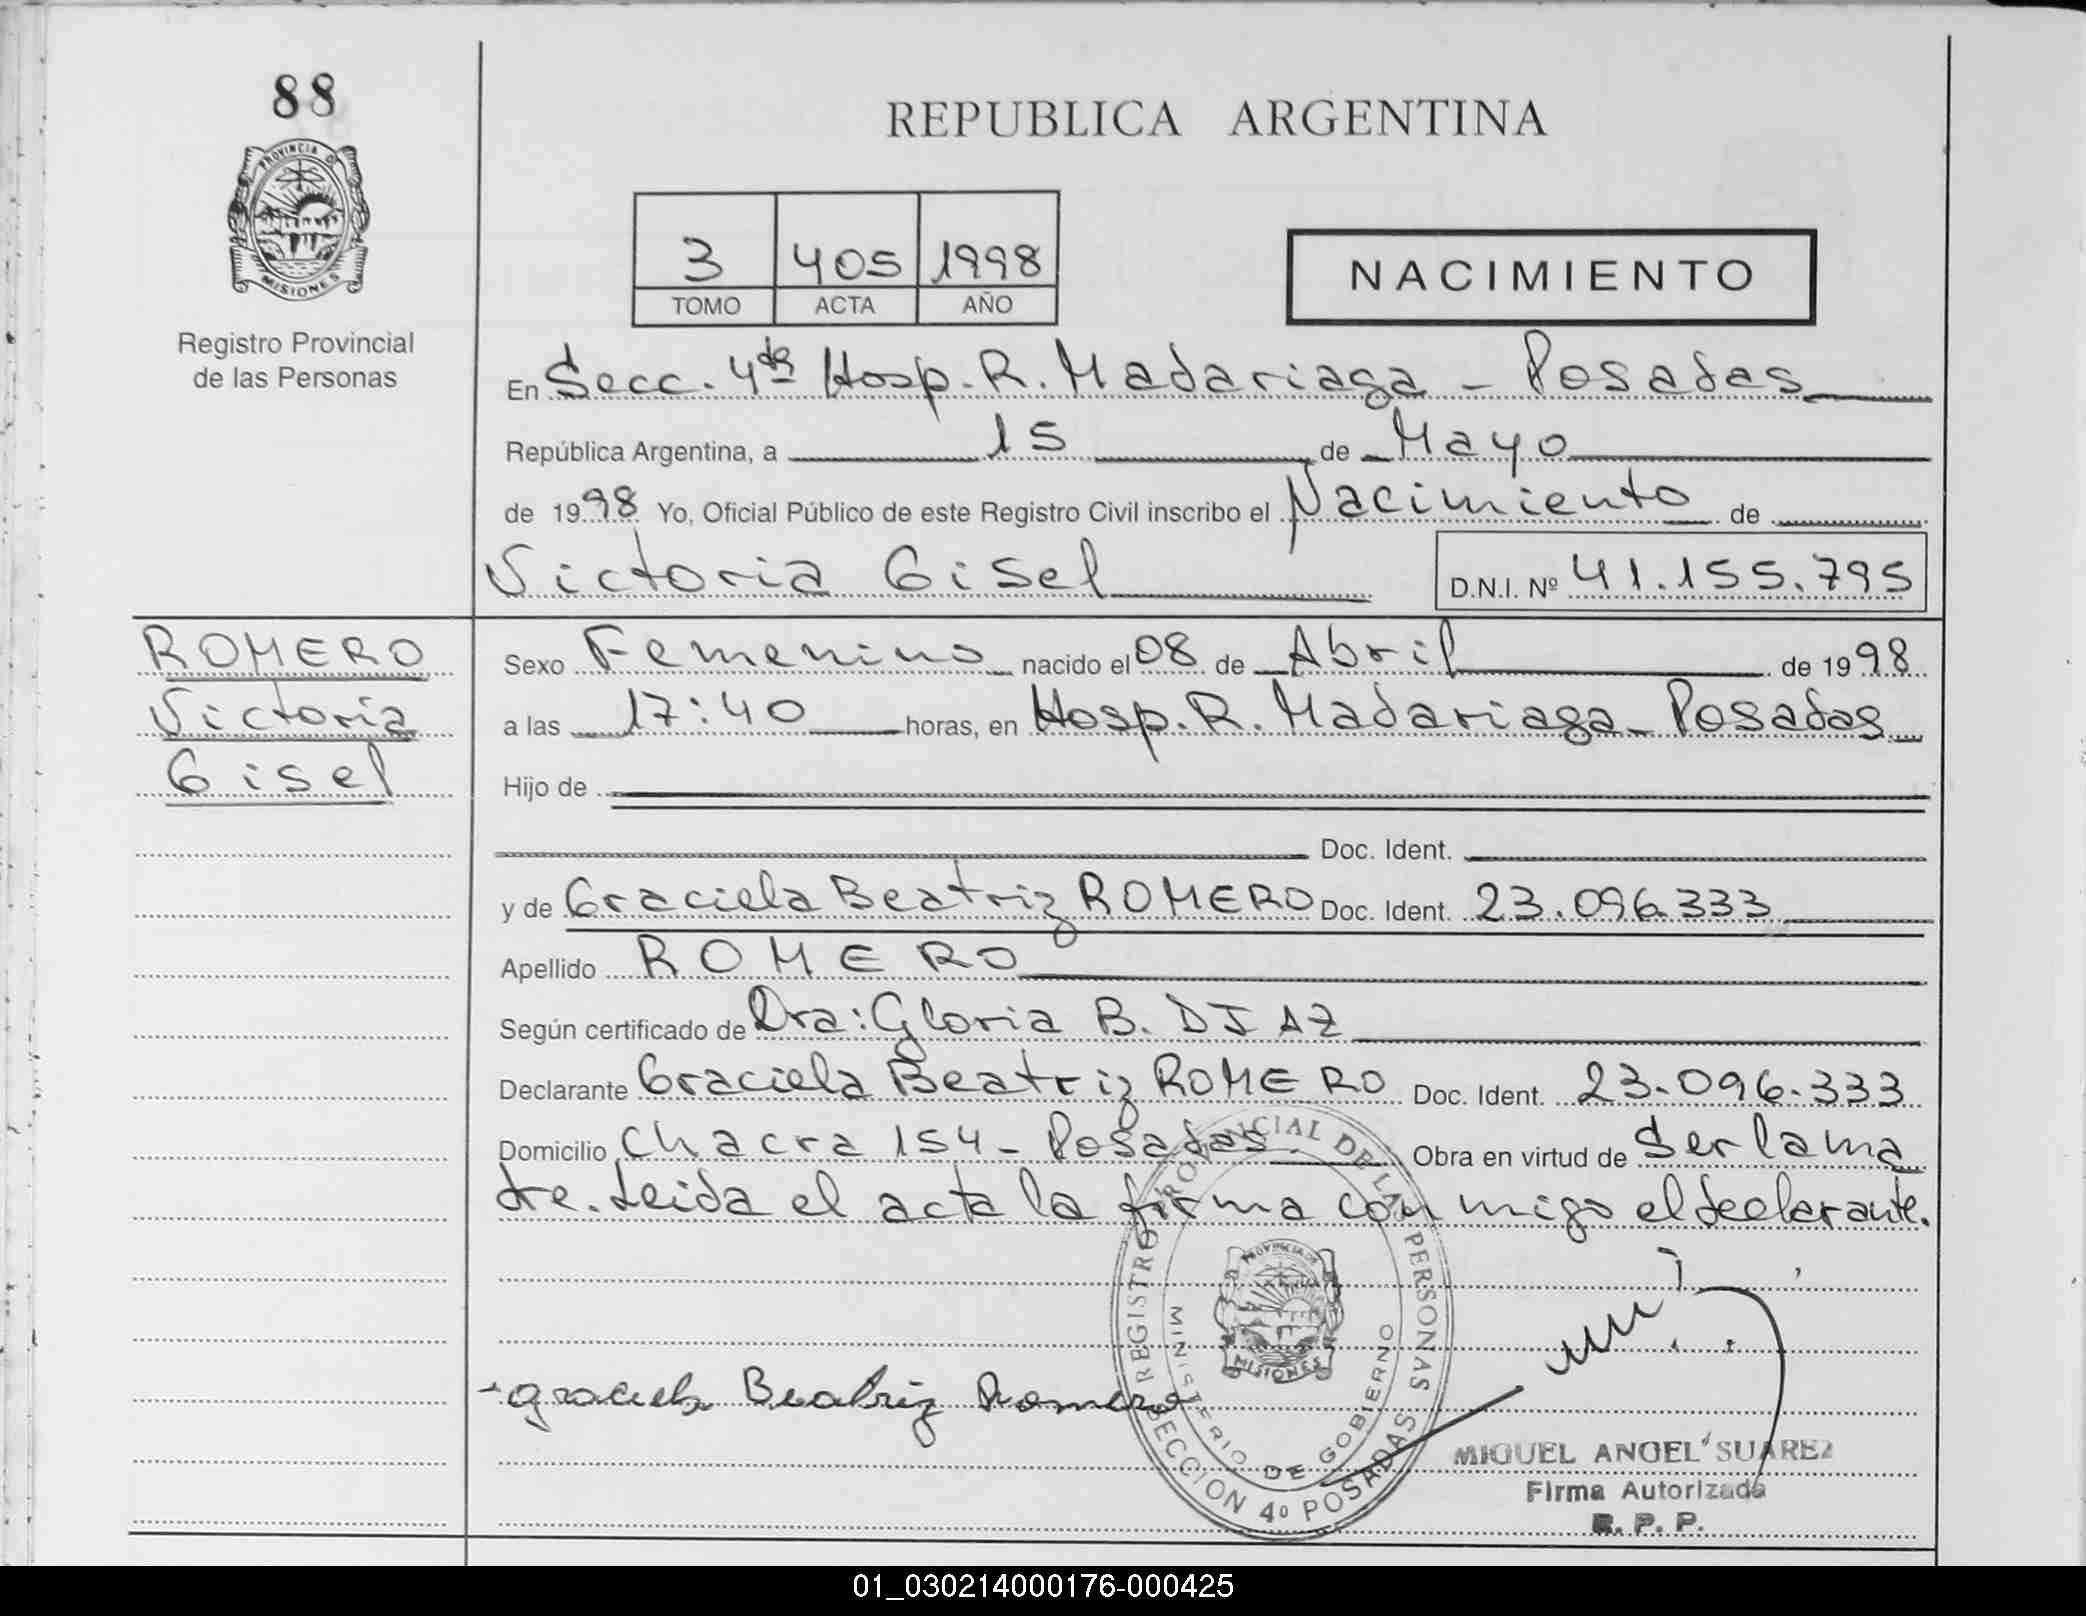 88
PROVINCIA DE
MISIONES
Registro Provincial
de las Personas
REPUBLICA ARGENTINA
3 405 1998
TOMO ACTA AÑO
NACIMIENTO
En Secc. 4ta Hosp. R. Madariaga - Posadas
República Argentina, a 15 de Mayo
de 1998 Yo, Oficial Público de este Registro Civil inscribo el Nacimiento de
Victoria Gisel D.N.I. Nº 41.155.795
ROMERO
Victoria
Gisel
Sexo Femenino nacido el 08 de Abril de 1998
a las 17:40 horas, en Hosp. R. Madariaga - Posadas
Hijo de
Doc. Ident.
y de Graciela Beatriz ROMERO Doc. Ident. 23.096.333
Apellido ROMERO
Según certificado de Dra: Gloria B. DIAZ
Declarante Graciela Beatriz ROMERO Doc. Ident. 23.096.333
Domicilio Chacra 154 - Posadas. Obra en virtud de Ser la ma
dre. Leida el acta la firma con migo el declarante.
REGISTRO PROVINCIAL DE LAS PERSONAS
MINISTERIO DE GOBIERNO
PROVINCIA DE
MISIONES
SECCION 4º POSADAS
Graciela Beatriz Romero
MIGUEL ANGEL SUAREZ
Firma Autorizada
R. P. P.
01_030214000176-000425